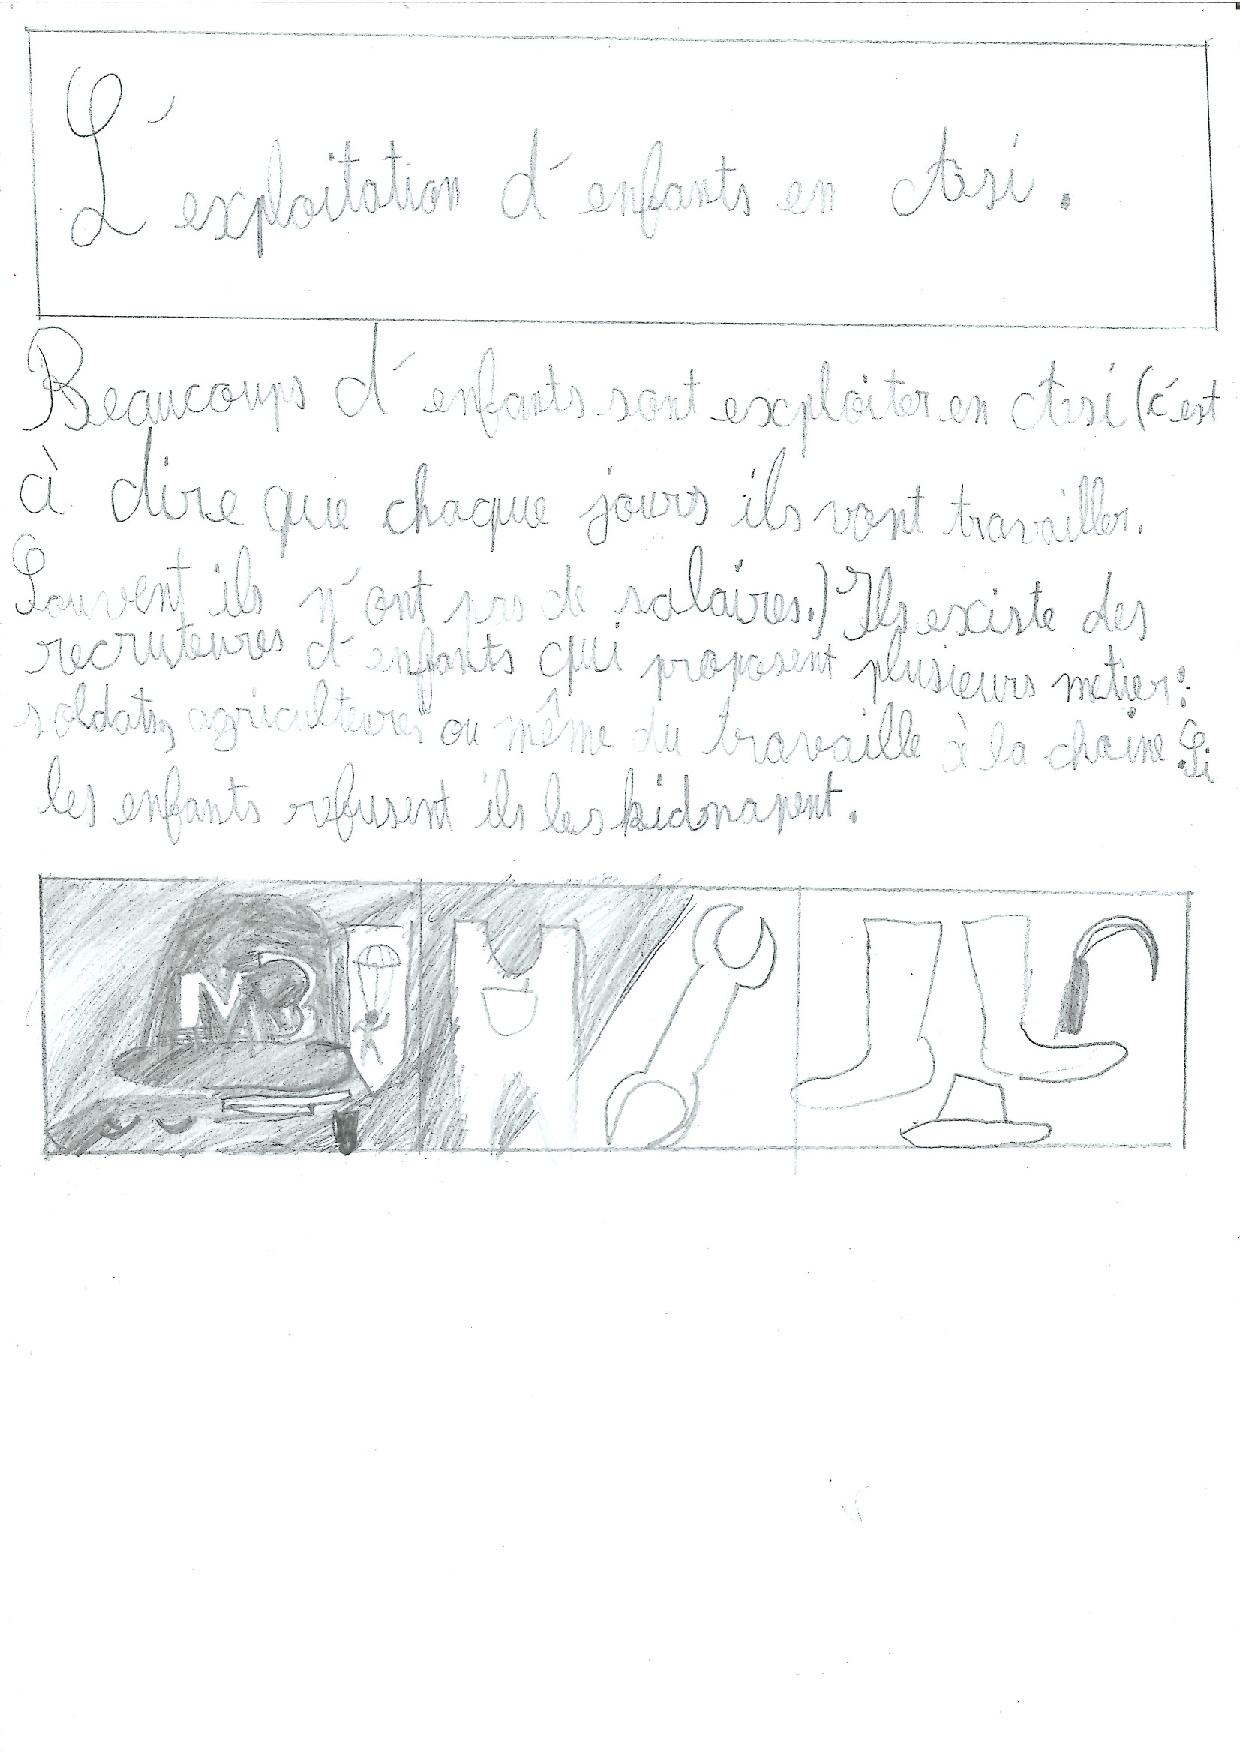 L'exploitation d'enfants en Asi.
Beaucoups d'enfants sont exploiter en Asi (c'est
à dire que chaque jours ils vont travailler.
Souvent ils n'ont pas de salaires.) Ils existe des
recruteures d'enfants qui proposent plusieurs metier:
soldats, agriculteures ou même du travaille à la chaine. Si
les enfants refusent ils les kidnapent.
MB